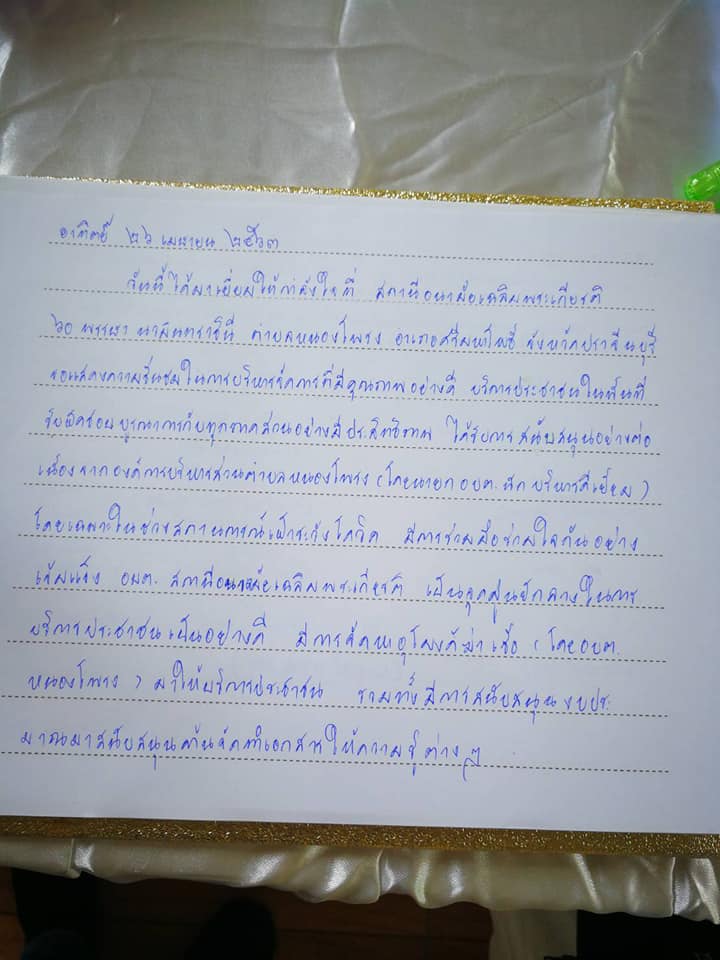 อาทิตย์ ๒๖ เมษายน ๒๕๖๓
วันนี้ได้มาเยี่ยมให้กำลังใจที่ สถานีอนามัยเฉลิมพระเกียรติ
๖๐ พรรษา นวมินทราชินี ตำบลหนองโพรง อำเภอศรีมหาโพธิ จังหวัดปราจีนบุรี
ขอแสดงความชื่นชมในการบริหารจัดการที่มีคุณภาพอย่างดี บริการประชาชนในพื้นที่
รับผิดชอบ บูรณาการกับทุกภาคส่วนอย่างมีประสิทธิภาพ ได้รับการสนับสนุนอย่างต่อ
เนื่องจากองค์การบริหารส่วนตำบลหนองโพรง (โดยนายก อบต. นักบริหารดีเยี่ยม)
โดยเฉพาะในช่วงสถานการณ์เฝ้าระวังโควิด มีการร่วมมือร่วมใจกันอย่าง
เข้มแข็ง อบต. สถานีอนามัยเฉลิมพระเกียรติ เป็นจุดศูนย์กลางในการ
บริการประชาชนเป็นอย่างดี มีการจัดหาอุโมงค์ฆ่าเชื้อ (โดยอบต.
หนองโพรง) มาให้บริการประชาชน รวมทั้งมีการสนับสนุนงบประ
มาณมาสนับสนุนด้านจัดทำเอกสารให้ความรู้ต่างๆ